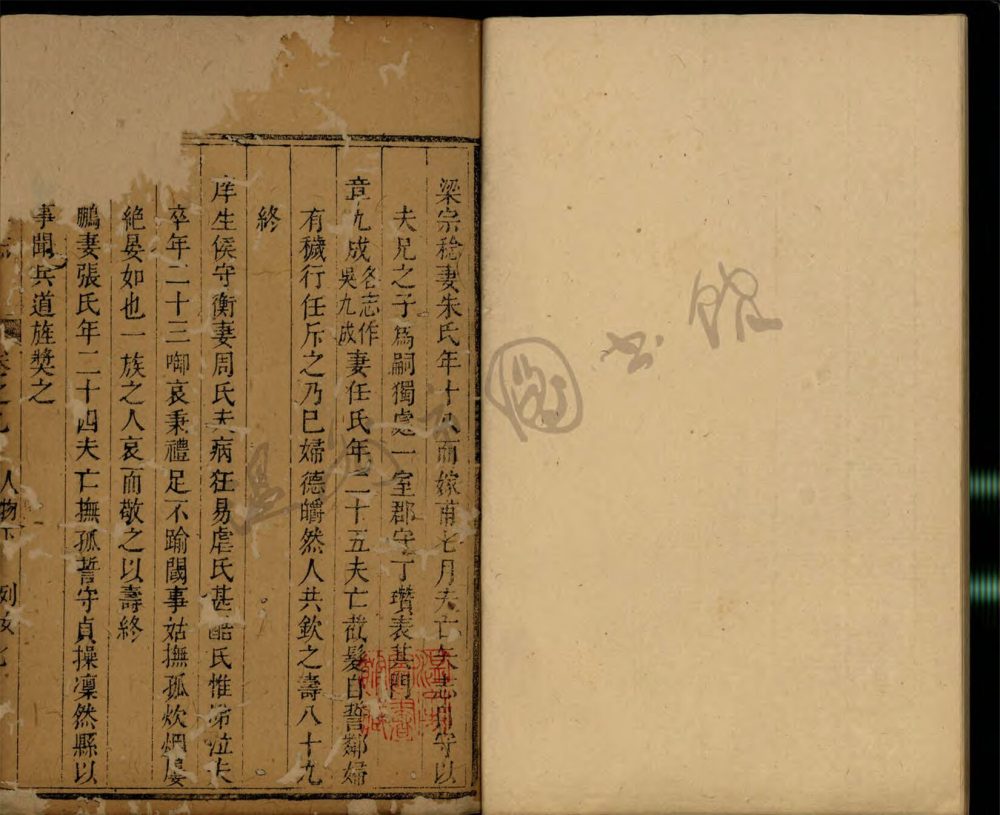 梁宗稔妻朱氏年十八而嫁甫七月夫亡矢志自守以
夫兄之子爲嗣獨處一室郡守丁瓚表其門
章九成各志作吳九成妻任氏年二十五夫亡截髮自誓鄰婦
有穢行任斥之乃已婦德皭然人共欽之壽八十九
終
庠生侯守衡妻周氏夫病狂易虐氏甚酷氏惟涕泣夫
卒年二十三啣哀秉禮足不踰閾事姑撫孤炊烟屢
絶晏如也一族之人哀而敬之以壽終
鵬妻張氏年二十四夫亡撫孤誓守貞操凜然縣以
事聞兵道旌奬之
卷之 人物下 列女
溫州圖書館